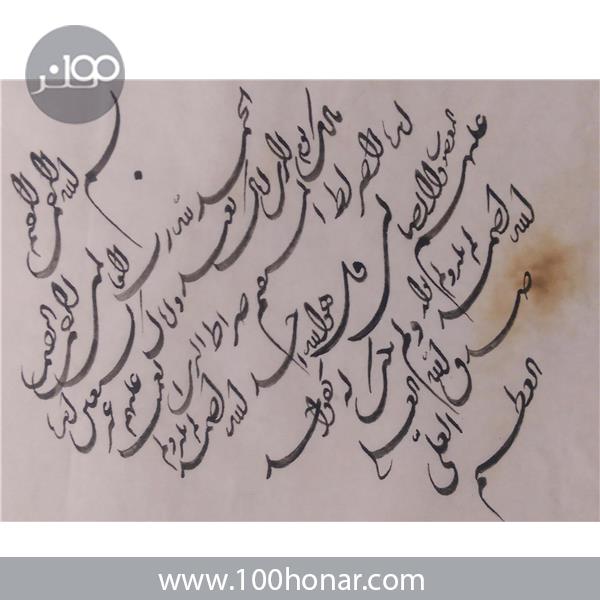 بسم الله الرحمن الرحیم
الحمد لله رب العالمین الرحمن الرحیم
مالک یوم الدین ایاک نعبد و ایاک نستعین
اهدنا الصراط المستقیم صراط الذین انعمت علیهم غیر
المغضوب علیهم ولا الضالین
قل هو الله احد الله الصمد لم یلد ولم
الله الصمد لم یلد ولم یولد ولم یکن له کفوا احد
صدق الله العلی العظیم
۱۰۰هنر
www.100honar.com